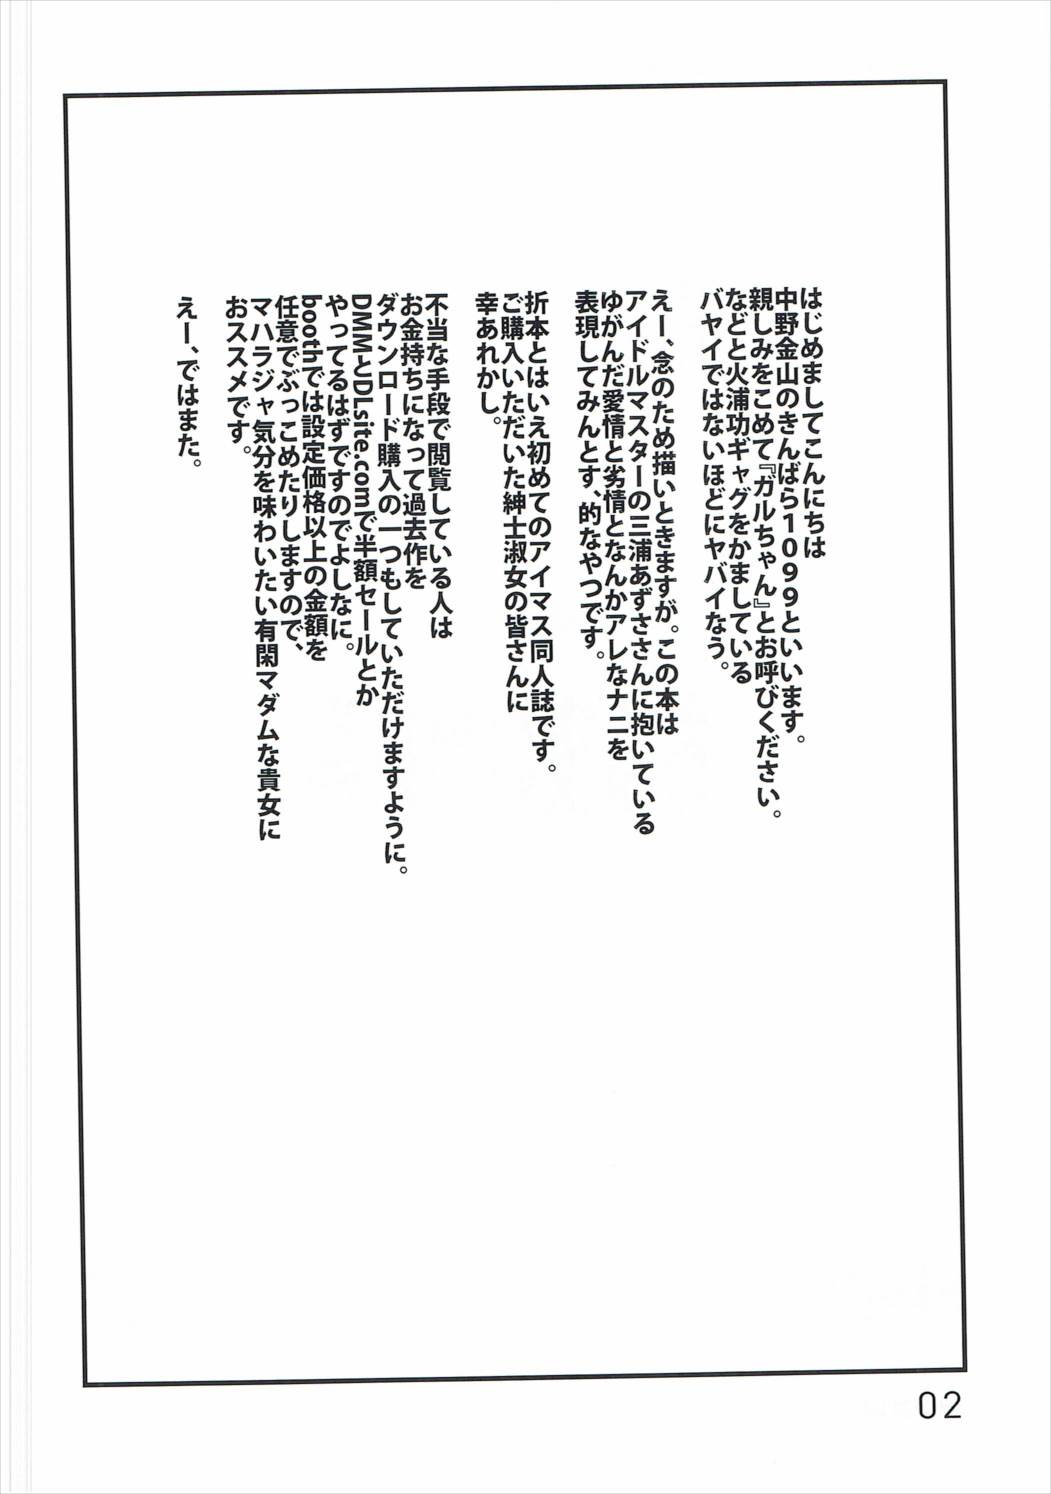 はじめましてこんにちは
中野金山のきんばら1099といいます。
親しみをこめて『ガルちゃん』とお呼びください。
などと火浦功ギャグをかましている
バヤイではないほどにヤバイなう。
えー、念のため描いときますが。この本は
アイドルマスターの三浦あずささんに抱いている
ゆがんだ愛情と劣情となんかアレなナニを
表現してみんとす、的なやつです。
折本とはいえ初めてのアイマス同人誌です。
ご購入いただいた紳士淑女の皆さんに
幸あれかし。
不当な手段で閲覧している人は
お金持ちになって過去作を
ダウンロード購入の一つもしていただけますように。
DMMとDLsite.comで半額セールとか
やってるはずですのでよしなに。
boothでは設定価格以上の金額を
任意でぶっこめたりしますので、
マハラジャ気分を味わいたい有閑マダムな貴女に
おススメです。
えー、ではまた。
02